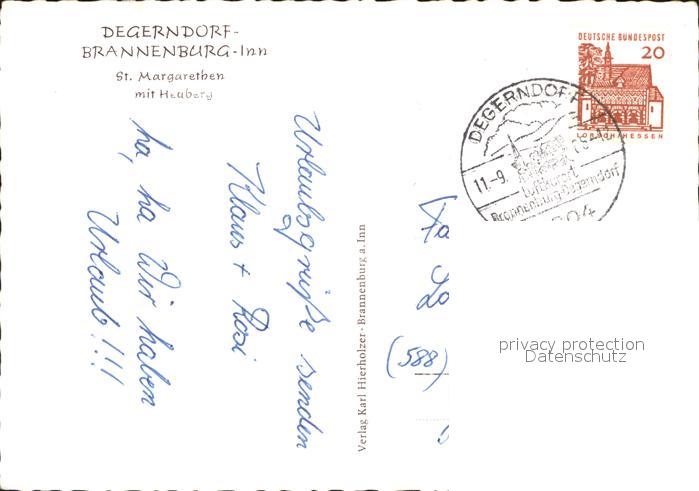 DEGERNDORF-
BRANNENBURG-Inn
St. Margarethen
mit Heuberg
Urlaubsgrüße senden
Klaus + Rosi
ha, ha Wir haben
Urlaub!!!
Verlag Karl Hierholzer · Brannenburg a. Inn
DEUTSCHE BUNDESPOST
20
LORSCH/HESSEN
DEGERNDORF
11.-9.
Luftkurort
Brannenburg-Degerndorf
(588)
privacy protection
Datenschutz